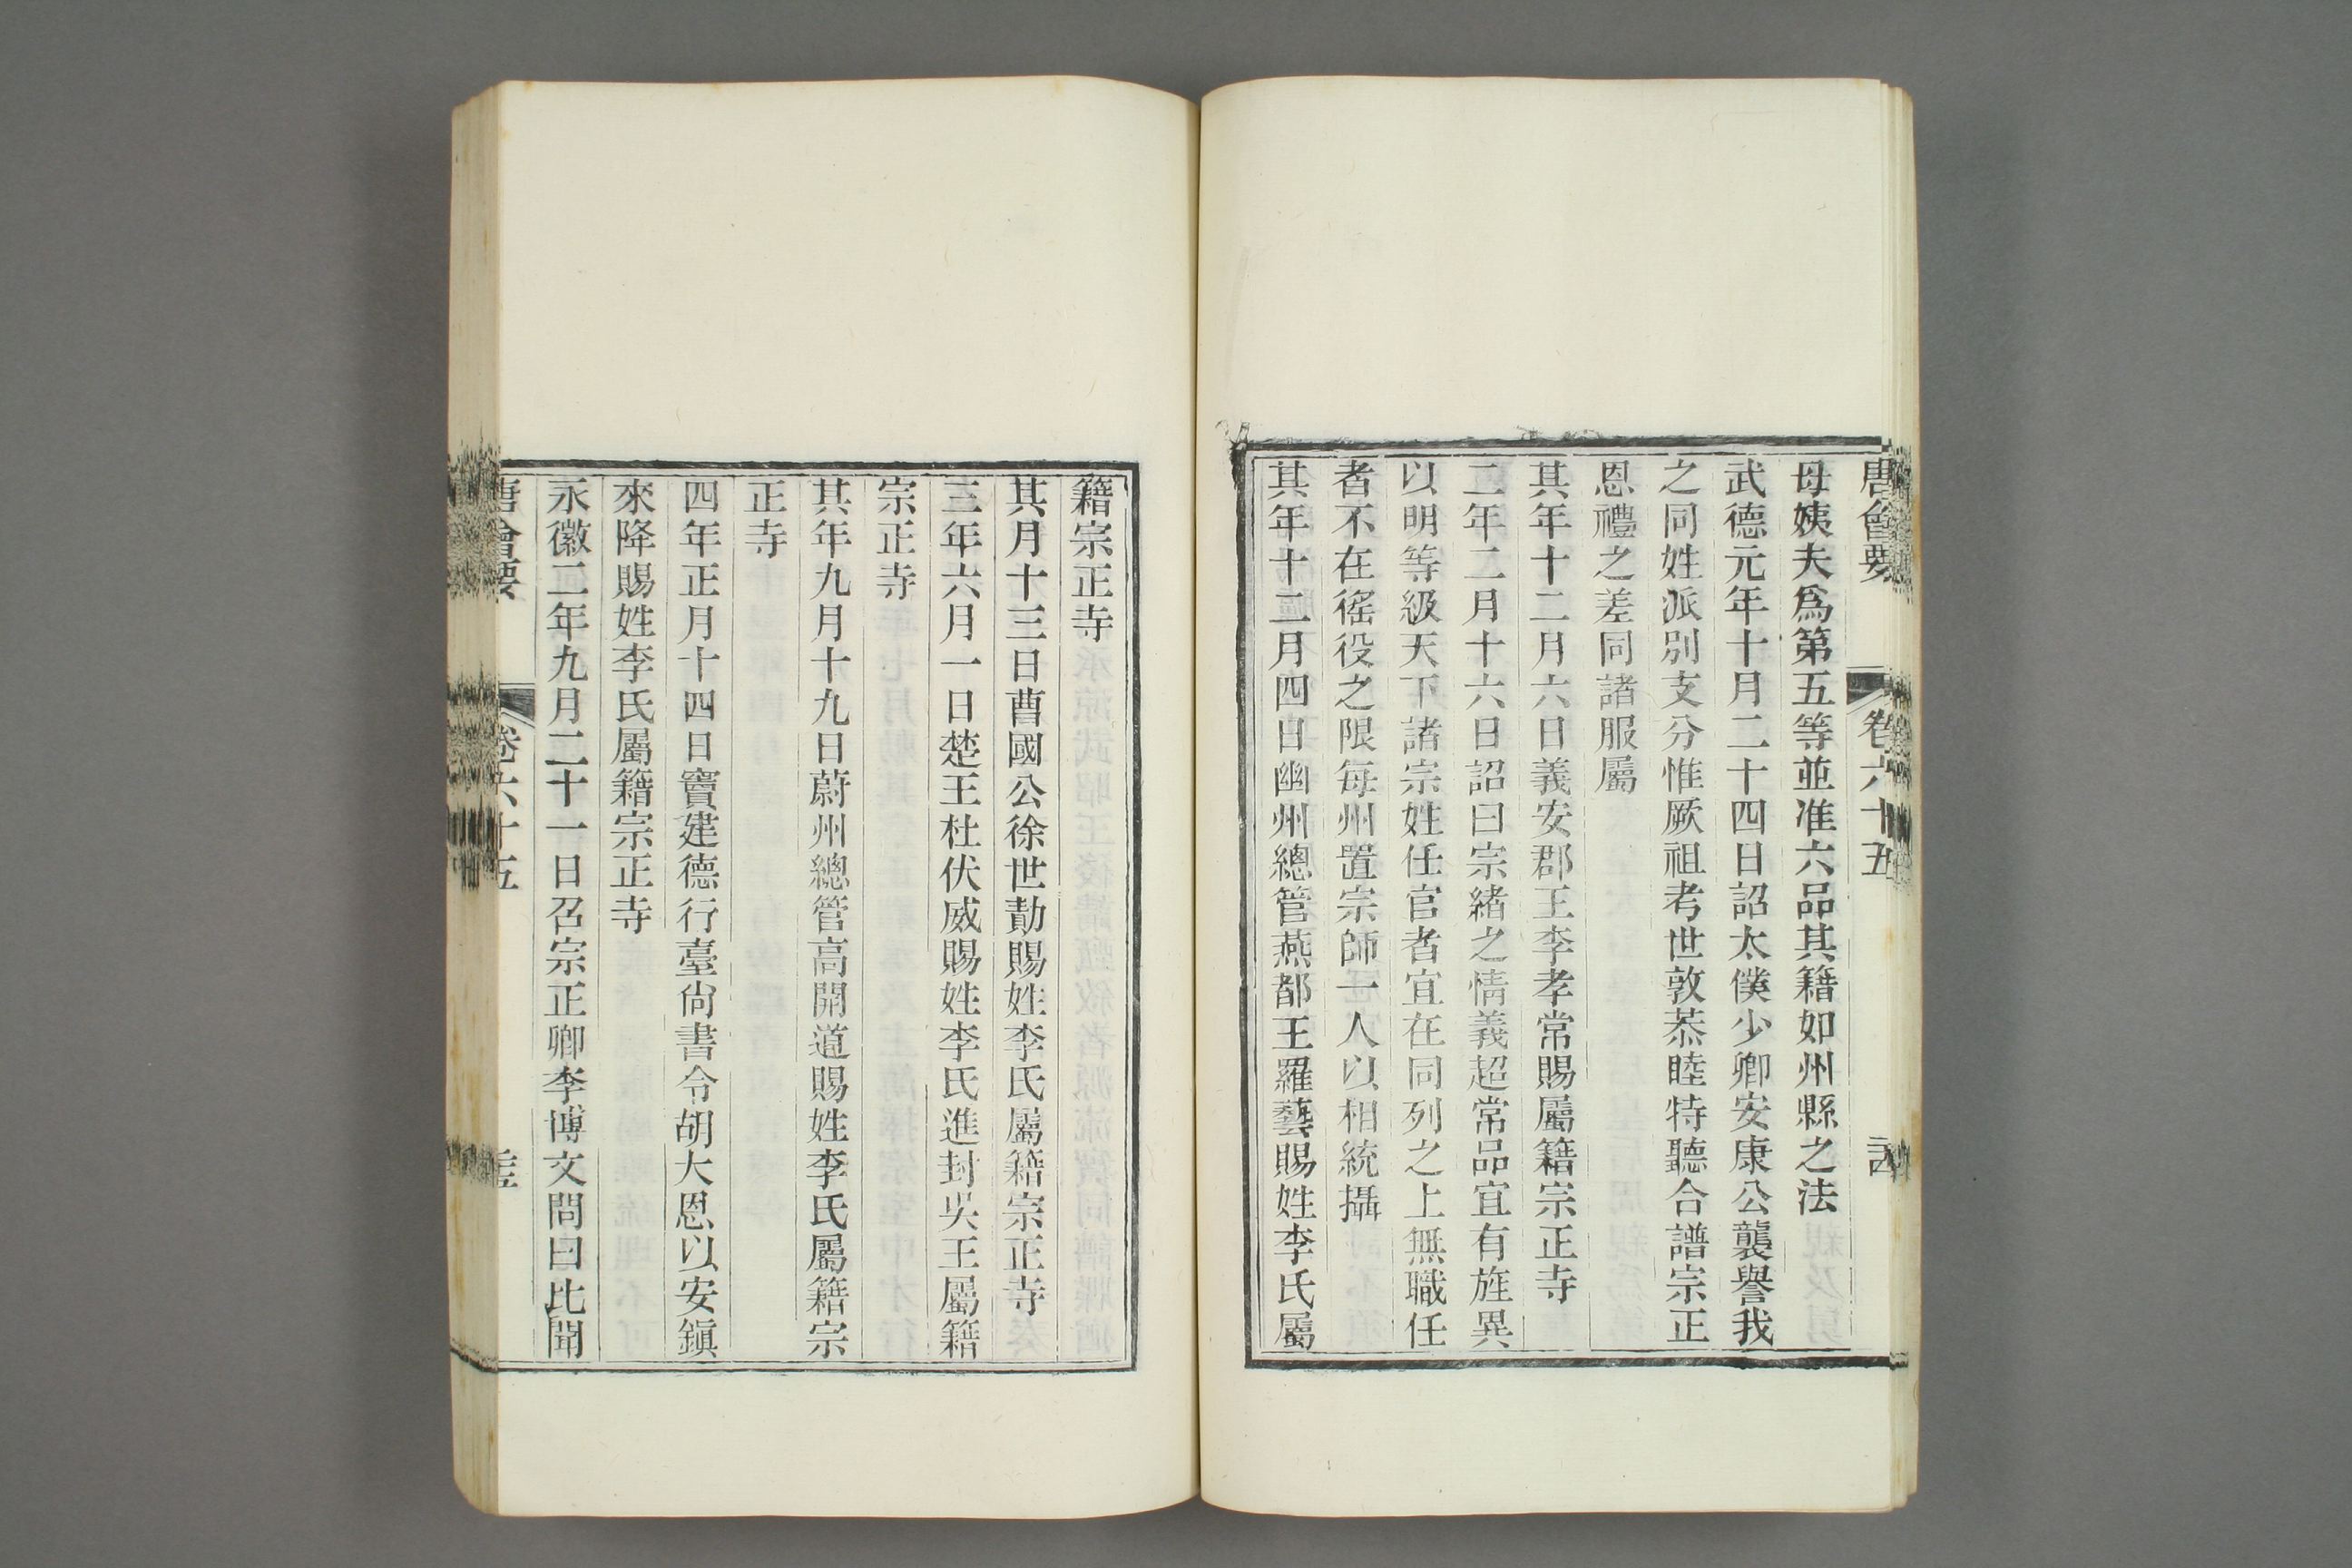 唐會要 卷六十五
母姨夫爲第五等並准六品其籍如州縣之法
武德元年十月二十四日詔太僕少卿安康公襲譽我
之同姓派別支分惟厥祖考世敦恭睦特聽合譜宗正
恩禮之差同諸服屬
其年十二月六日義安郡王李孝常賜屬籍宗正寺
二年二月十六日詔曰宗緒之情義超常品宜有旌異
以明等級天下諸宗姓任官者宜在同列之上無職任
者不在徭役之限每州置宗師一人以相統攝
其年十二月四日幽州總管燕都王羅藝賜姓李氏屬
籍宗正寺
其月十三日曹國公徐世勣賜姓李氏屬籍宗正寺
三年六月一日楚王杜伏威賜姓李氏進封吳王屬籍
宗正寺
其年九月十九日蔚州總管高開道賜姓李氏屬籍宗
正寺
四年正月十四日竇建德行臺尙書令胡大恩以安鎭
來降賜姓李氏屬籍宗正寺
永徽二年九月二十一日召宗正卿李博文問曰比聞
唐會要 卷六十五